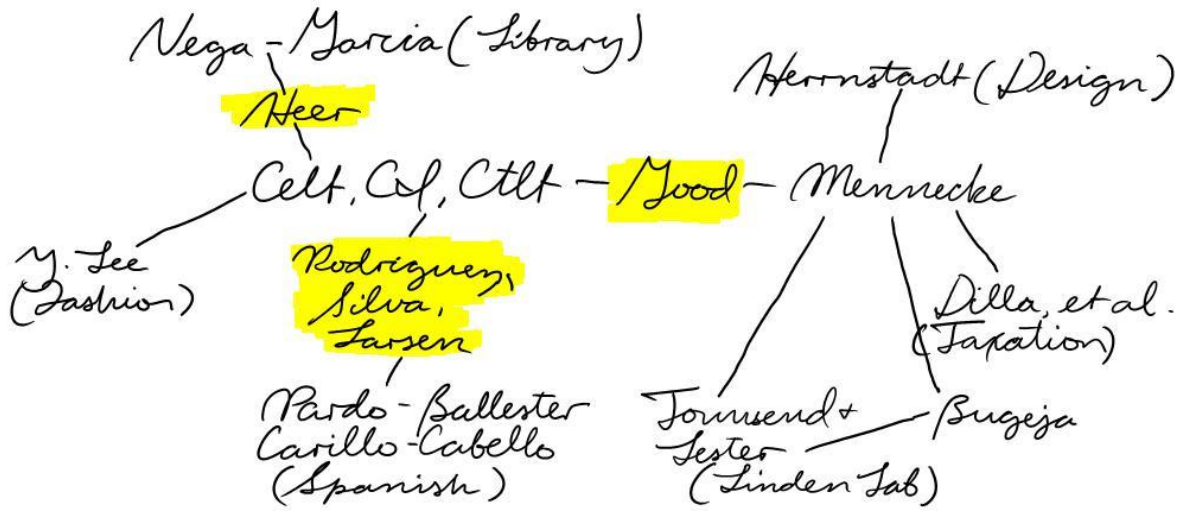 Vega-Garcia (Library)
Herrnstadt (Design)
Heer
Celt, Col, Ctlt
Good
Mennecke
Y. Lee
(Fashion)
Rodriguez,
Silva,
Larsen
Dilla, et al.
(Taxation)
Pardo-Ballester
Carillo-Cabello
(Spanish)
Townsend +
Lester
(Linden Lab)
Bugeja